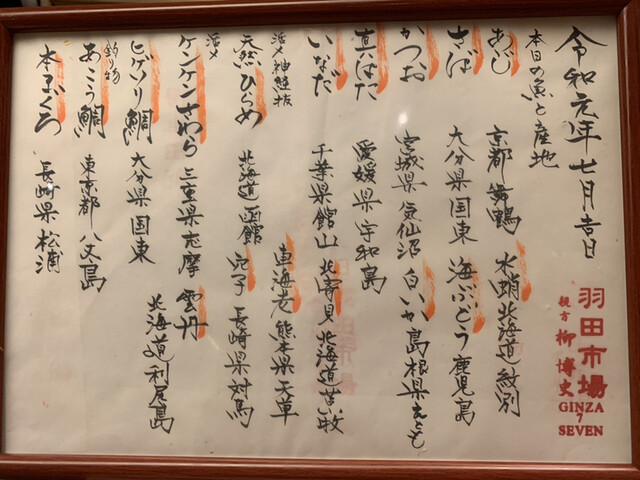 令和元年七月吉日
本日の魚と産地
あじ 京都 舞鶴 水蛸 北海道 紋別
さば 大分県 国東 海ぶどう 鹿児島
かつお 宮城県 気仙沼 白いか 島根県
真はた 愛媛県 宇和島
いなだ 千葉県 館山 北寄貝 北海道 苫小牧
活〆神経抜
天然ひらめ 北海道 函館 車海老 熊本県 天草
活〆
ケンケンさわら 三重県 志摩 穴子 長崎県 対馬
ヒゲソリ鯛 大分県 国東 雲丹 北海道 利尻島
釣り物
あこう鯛 東京都 八丈島
本まぐろ 長崎県 松浦
羽田市場
親方 柳 博史
GINZA
7
SEVEN